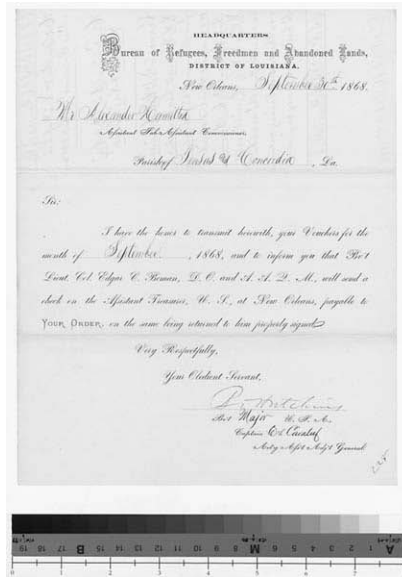 HEADQUARTERS
Bureau of Refugees, Freedmen and Abandoned Lands,
DISTRICT OF LOUISIANA.
New Orleans, September 30th 1868.
Mr Alexander Hamilton
Assistant Sub-Assistant Commissioner,
Parish of Tensas & Concordia, La.
Sir:
I have the honor to transmit herewith, your Vouchers for the
month of September, 1868, and to inform you that Bv't
Lieut. Col. Edgar C. Beman, D. O. and A. A. Q. M., will send a
check on the Assistant Treasurer, U. S., at New Orleans, payable to
YOUR ORDER, on the same being returned to him properly signed
Very Respectfully,
Your Obedient Servant,
B. Hutchins
Bvt Major U. S. A.
Captain 6th Cavalry
Act'g Ass't Adj't General.